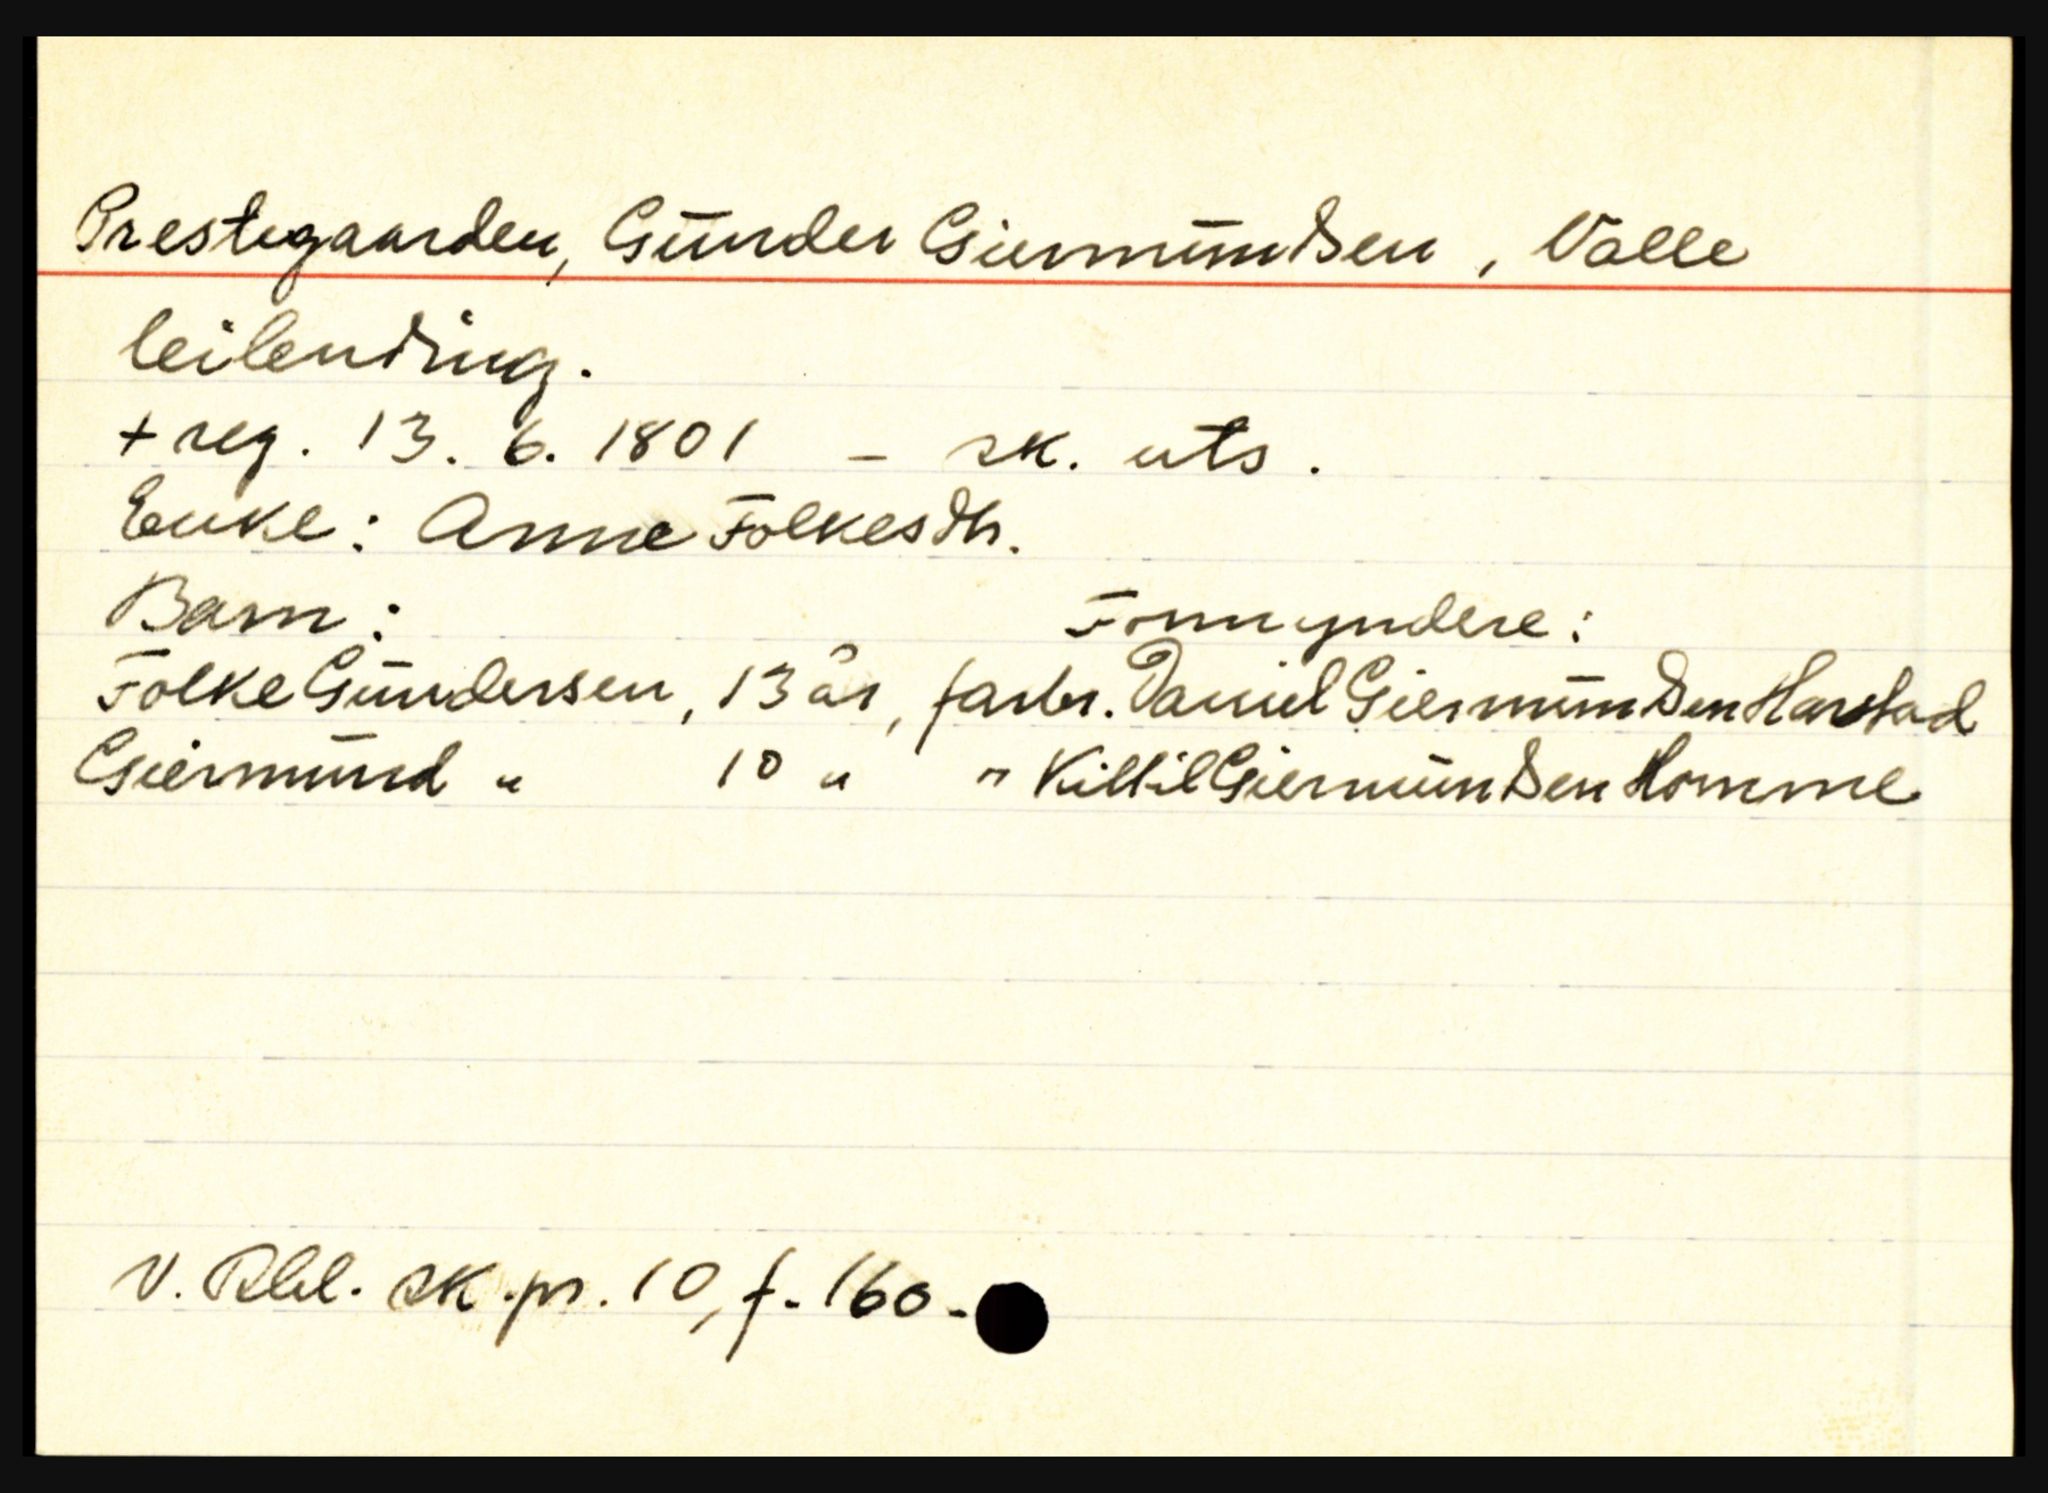 Prestegaarden, Gunder Giermundsen, Valle
leilending.
+ reg. 13. 6. 1801 - sk. uts.
Enke: Anne Folkesdtr.
Barn: Formyndere:
Folke Gundersen, 13 år, farbr. Daniel Giermundsen Harstad
Giermund " 10 " " Kittil Giermundsen Homme
V. Rbl. sk.pr. 10, f. 160-